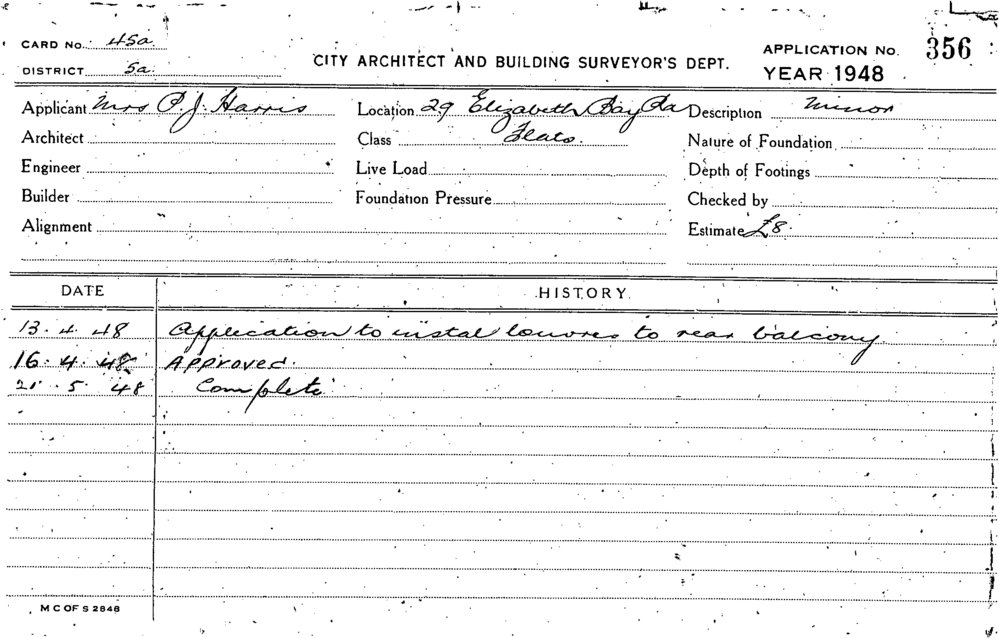 CARD No. 45a
DISTRICT 5a
CITY ARCHITECT AND BUILDING SURVEYOR'S DEPT.
APPLICATION No. 356
YEAR 1948
Applicant Mrs P. J. Harris Location 29 Elizabeth Bay Rd Description Minor
Architect Class Flats. Nature of Foundation
Engineer Live Load Depth of Footings
Builder Foundation Pressure Checked by
Alignment Estimate £8.
DATE HISTORY
13.4.48 Application to instal louvres to rear balcony
16.4.48 Approved.
21.5.48 Complete
M C OF S 2848